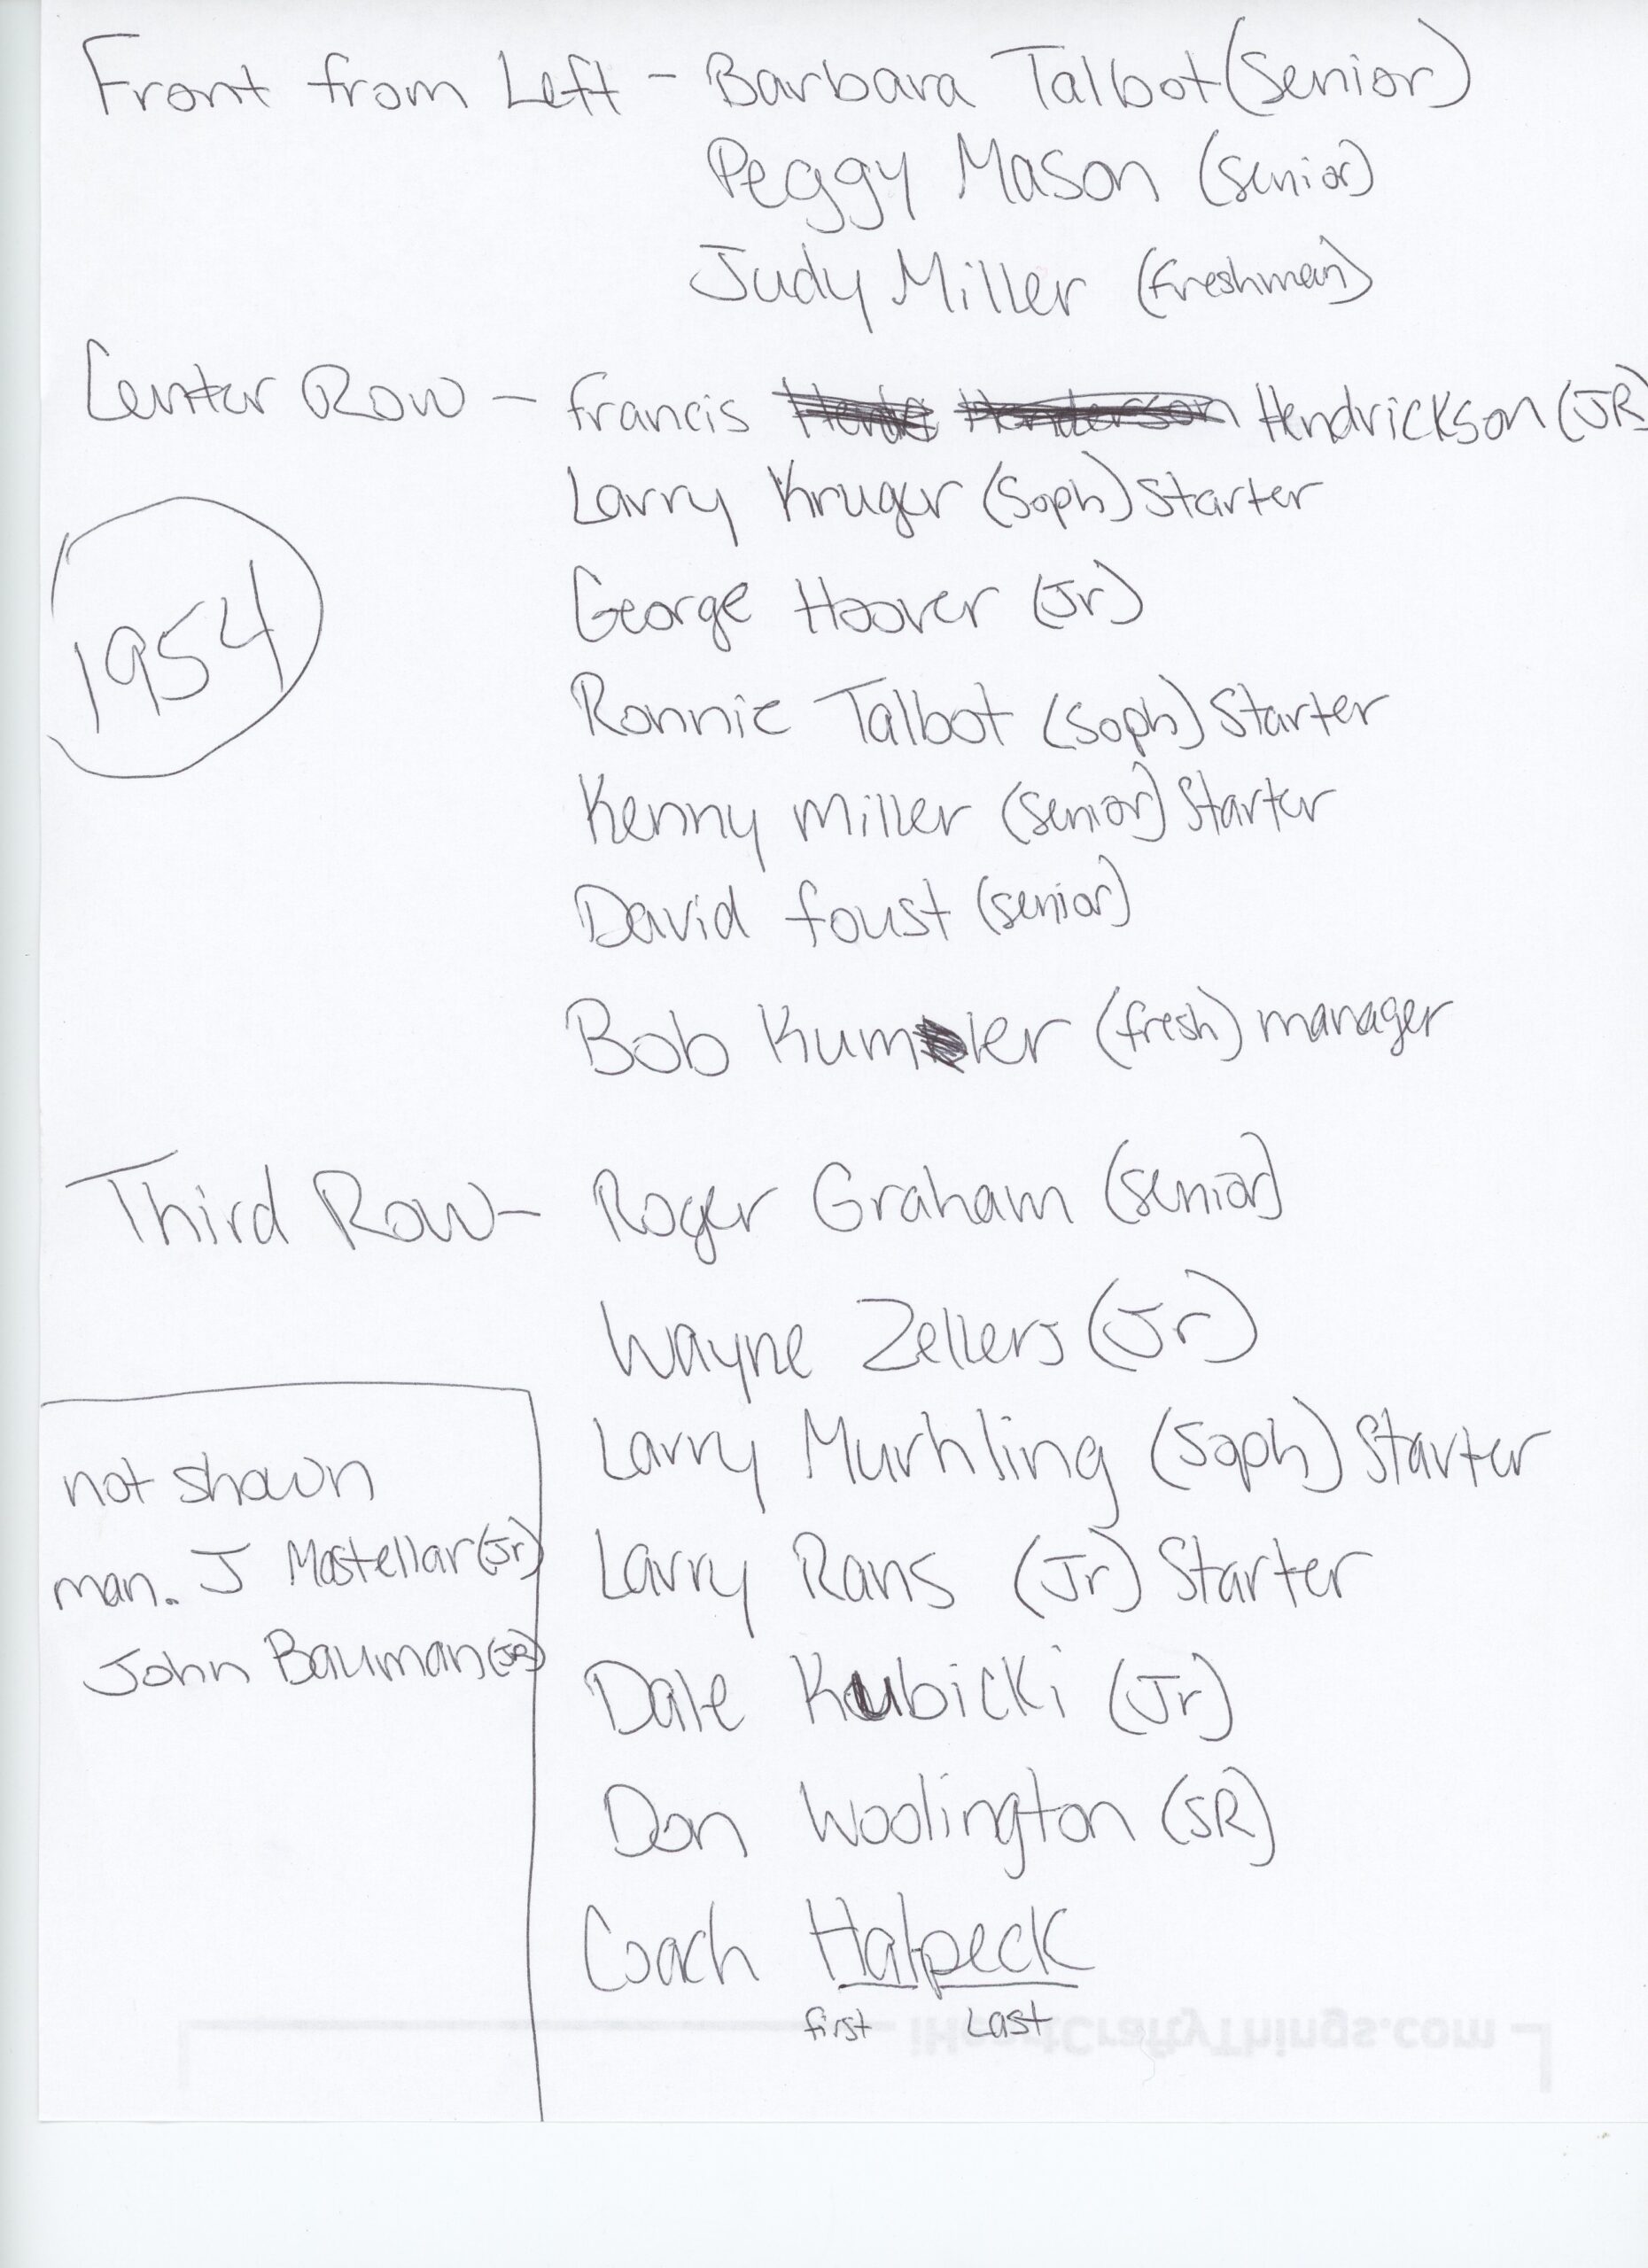 Front from Left - Barbara Talbot (Senior)
Peggy Mason (senior)
Judy Miller (freshman)
Center Row - Francis Henderson Hendrickson (JR)
Larry Kruger (Soph) Starter
George Hoover (Jr)
1954
Ronnie Talbot (Soph) Starter
Kenny Miller (senior) Starter
David Foust (senior)
Bob Kumler (fresh) manager
Third Row - Roger Graham (senior)
Wayne Zellers (Jr)
Larry Murhling (Soph) Starter
Larry Rans (Jr) Starter
Dale Kubicki (Jr)
Don Woolington (SR)
Coach Hal peck
first Last
not shown
man. J Mostellar (Jr)
John Bauman (JR)
iHeartCraftyThings.com